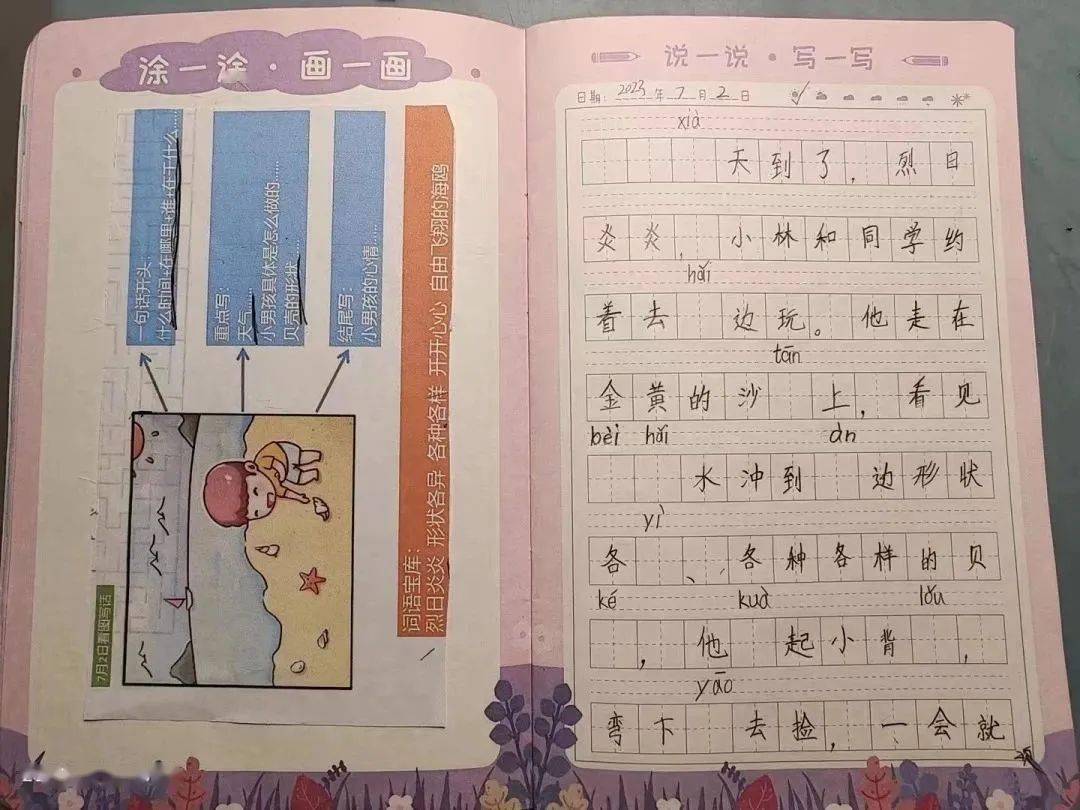 涂一涂·画一画
7月2日看图写话
一句话开头：
什么时间+在哪里+谁+在干什么……
重点写：
天气……
小男孩具体是怎么做的……
贝壳的形状……
结尾写：
小男孩的心情……
词语宝库：
烈日炎炎 形状各异 各种各样 开开心心 自由飞翔的海鸥
说一说·写一写
日期：2023年7月2日
xià
天到了，烈日
炎炎，小林和同学约
hǎi
着去 边玩。他走在
tān
金黄的沙 上，看见
bèi hǎi àn
水冲到 边形状
yì
各 、各种各样的贝
ké kuà lǒu
，他 起小背 ，
yāo
弯下 去捡，一会就